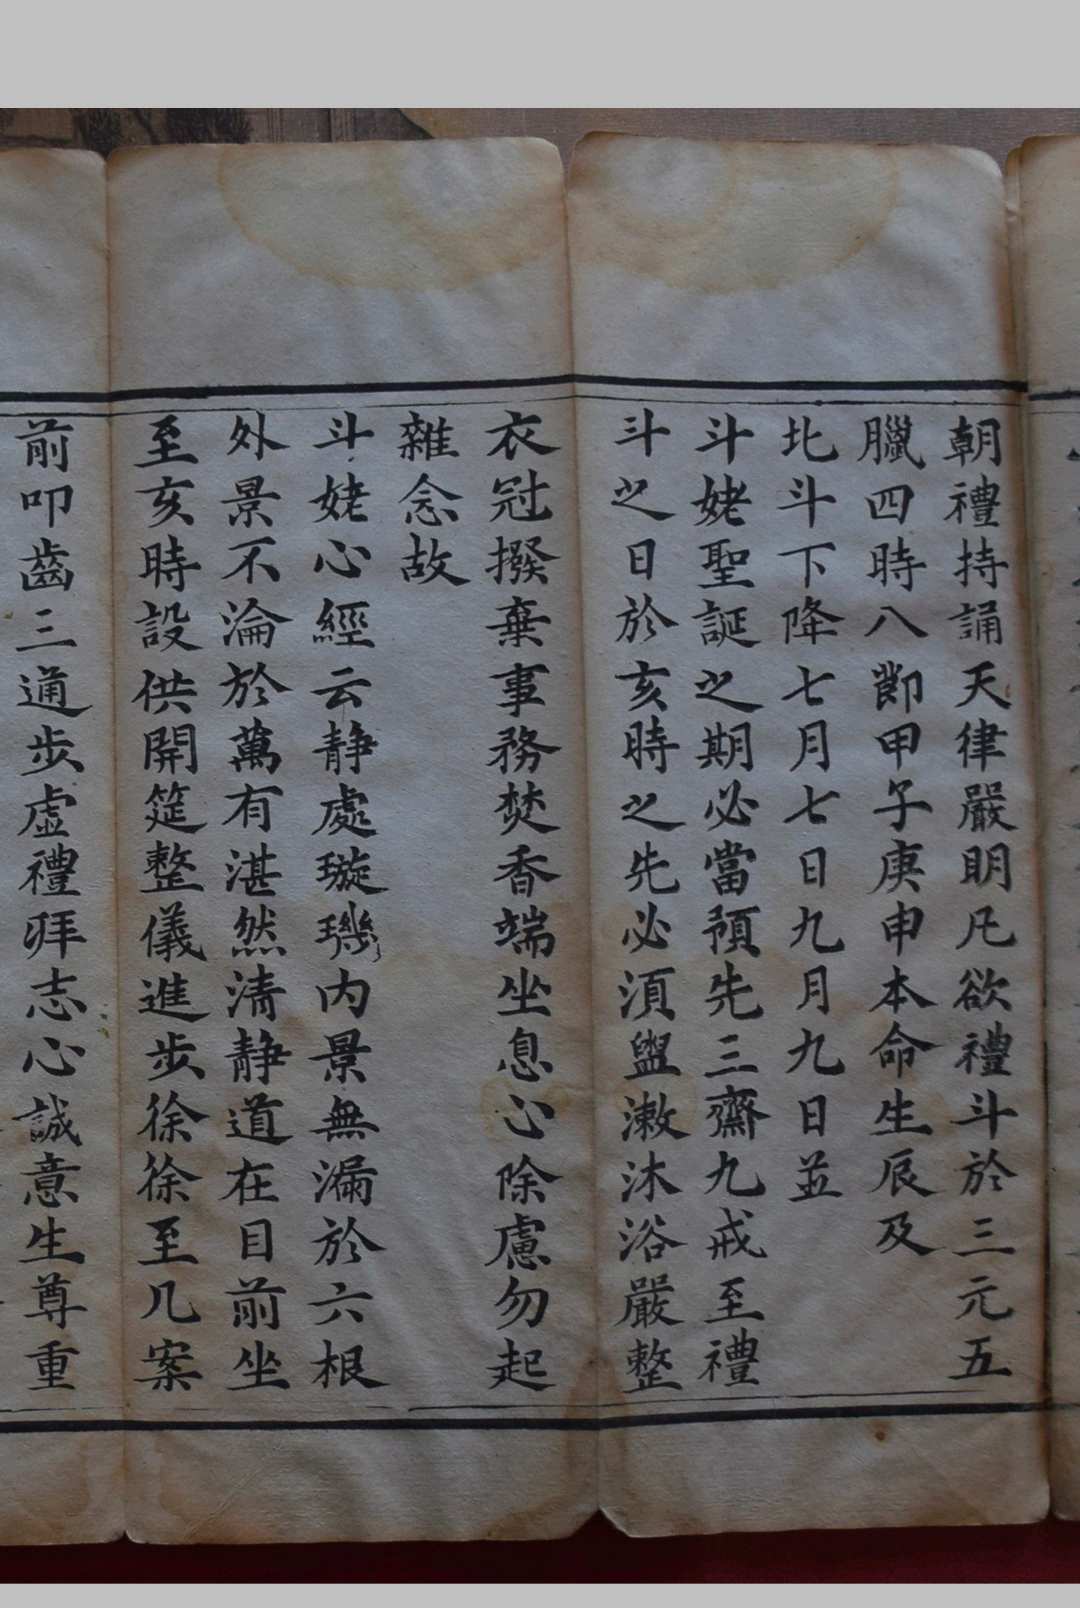 朝禮持誦天律嚴明凡欲禮斗於三元五
臘四時八節甲子庚申本命生辰及
北斗下降七月七日九月九日並
斗姥聖誕之期必當預先三齋九戒至禮
斗之日於亥時之先必須盥漱沐浴嚴整
衣冠撥棄事務焚香端坐息心除慮勿起
雜念故
斗姥心經云静處璇璣內景無漏於六根
外景不淪於萬有湛然清静道在目前坐
至亥時設供開筵整儀進步徐徐至几案
前叩齒三通步虛禮拜志心誠意生尊重